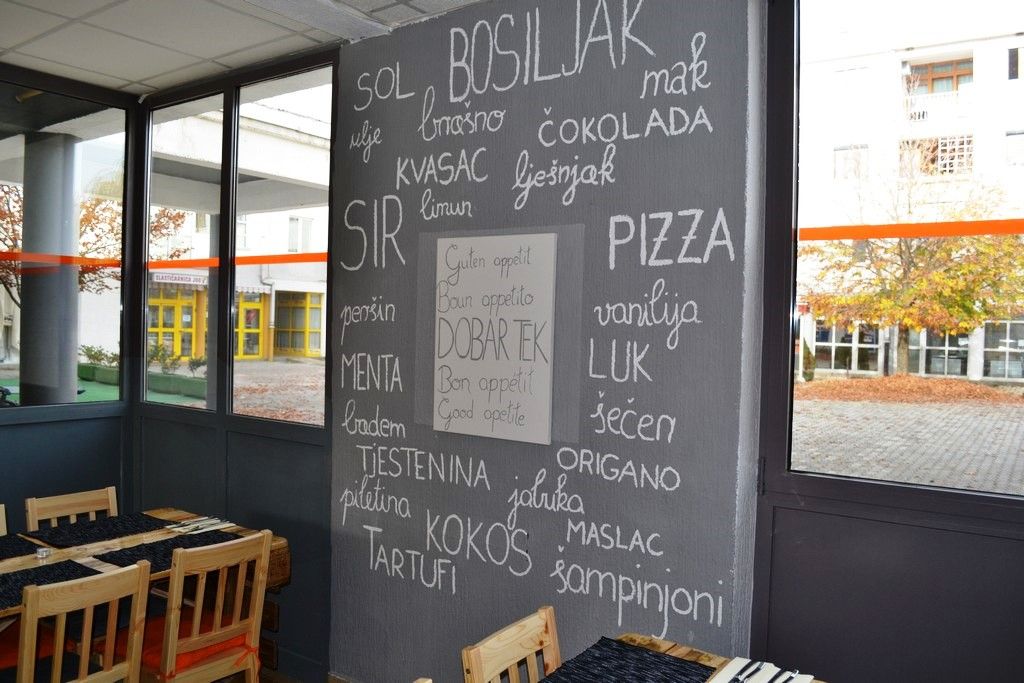 BOSILJAK
SOL
mak
ulje
brašno
ČOKOLADA
KVASAC
lješnjak
SIR
limun
PIZZA
Guten appetit
Boun appetito
DOBAR TEK
Bon appétit
Good apetite
peršin
vanilija
MENTA
LUK
badem
šećer
TJESTENINA
ORIGANO
piletina
jabuka
KOKOS
MASLAC
TARTUFI
šampinjoni
SLASTIČARNICA